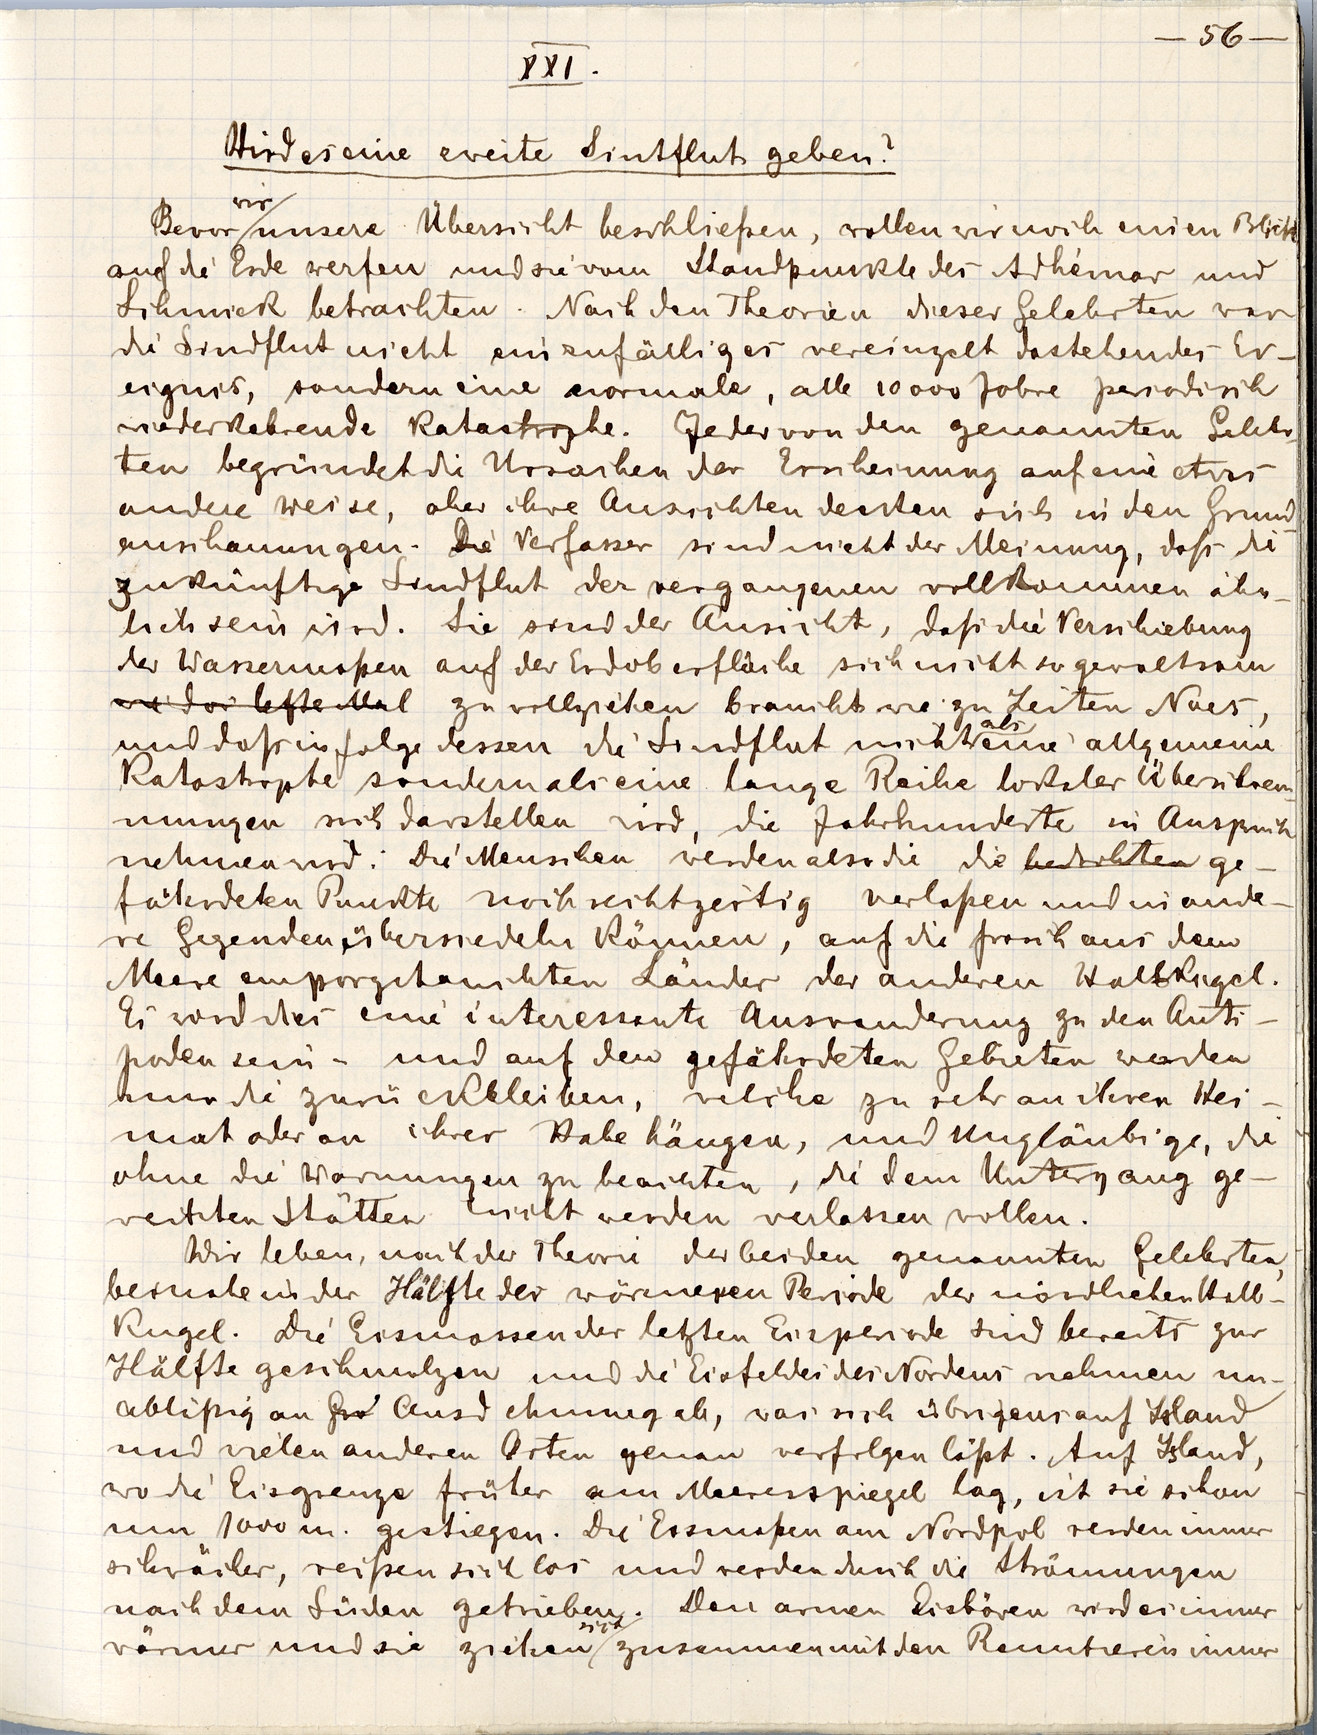 — 56 —
XXI.
Wird es eine zweite Sintflut geben?
Bevor wir unsere Übersicht beschließen, wollen wir noch einen Blick
auf die Erde werfen und sie vom Standpunkte des Adhémar und
Schmick betrachten. Nach den Theorien dieser Gelehrten war
die Sindflut nicht ein zufälliges vereinzelt dastehendes Er-
eignis, sondern eine normale, alle 10000 Jahre periodisch
wiederkehrende Katastrophe. Jeder von den genannten Gelehr-
ten begründet die Ursachen der Erscheinung auf eine etwas
andere Weise, aber ihre Ansichten decken sich in den Grund-
anschauungen. Die Verfasser sind nicht der Meinung, daß die
zukünftige Sindflut der vergangenen vollkommen ähn-
lich sein wird. Sie sind der Ansicht, daß die Verschiebung
der Wassermaßen auf der Erdoberfläche sich nicht so gewaltsam
wie das letzte Mal zu vollziehen braucht wie zu Zeiten Noes,
und daß infolge dessen die Sindflut nicht als eine allgemeine
Katastrophe sondern als eine lange Reihe lokaler Überschwem-
mungen sich darstellen wird, die Jahrhunderte in Anspruch
nehmen wird. Die Menschen werden also die die bedrohten ge-
fährdeten Punkte noch rechtzeitig verlaßen und in ande-
re Gegenden übersiedeln können, auf die frisch aus dem
Meere emporgetauchten Länder der anderen Halbkugel.
Es wird dies eine interessante Auswanderung zu den Anti-
poden sein - und auf den gefährdeten Gebieten werden
nur die zurückbleiben, welche zu sehr an ihrer Hei-
mat oder an ihrer Habe hängen, und Ungläubige, die
ohne die Warnungen zu beachten, die dem Untergang ge-
weihten Stätten nicht werden verlassen wollen.
Wir leben, nach der Theorie der beiden genannten Gelehrten,
beinahe in der Hälfte der wärmeren Periode der nördlichen Halb-
kugel. Die Eismassen der letzten Eisperiode sind bereits zur
Hälfte geschmolzen und die Eisfelder des Nordens nehmen un-
abläßig an Ausdehnung ab, was sich übrigens auf Island
und vielen anderen Orten genau verfolgen läßt. Auf Island,
wo die Eisgrenze früher am Meeresspiegel lag, ist sie schon
um 1000 m. gestiegen. Die Eismaßen am Nordpol werden immer
schwächer, reißen sich los und werden durch die Strömungen
nach dem Süden getrieben. Den armen Eisbären wird es immer
wärmer und sie ziehen sich zusammen mit den Renntieren immer